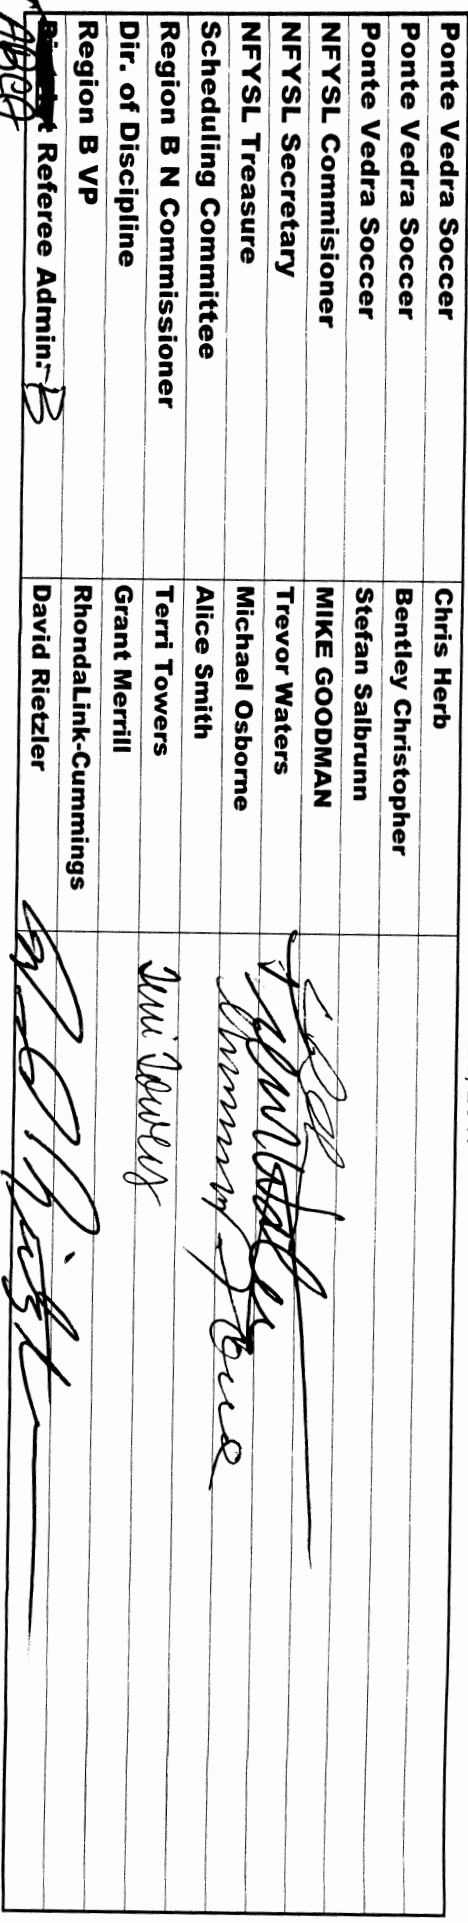 Ponte Vedra Soccer Chris Herb
Ponte Vedra Soccer Bentley Christopher
Ponte Vedra Soccer Stefan Salbrunn
NFYSL Commisioner MIKE GOODMAN
NFYSL Secretary Trevor Waters
NFYSL Treasure Michael Osborne
Scheduling Committee Alice Smith
Region B N Commissioner Terri Towers Terri Towers
Dir. of Discipline Grant Merrill
Region B VP RhondaLink-Cummings
Referee Admin.-B David Rietzler